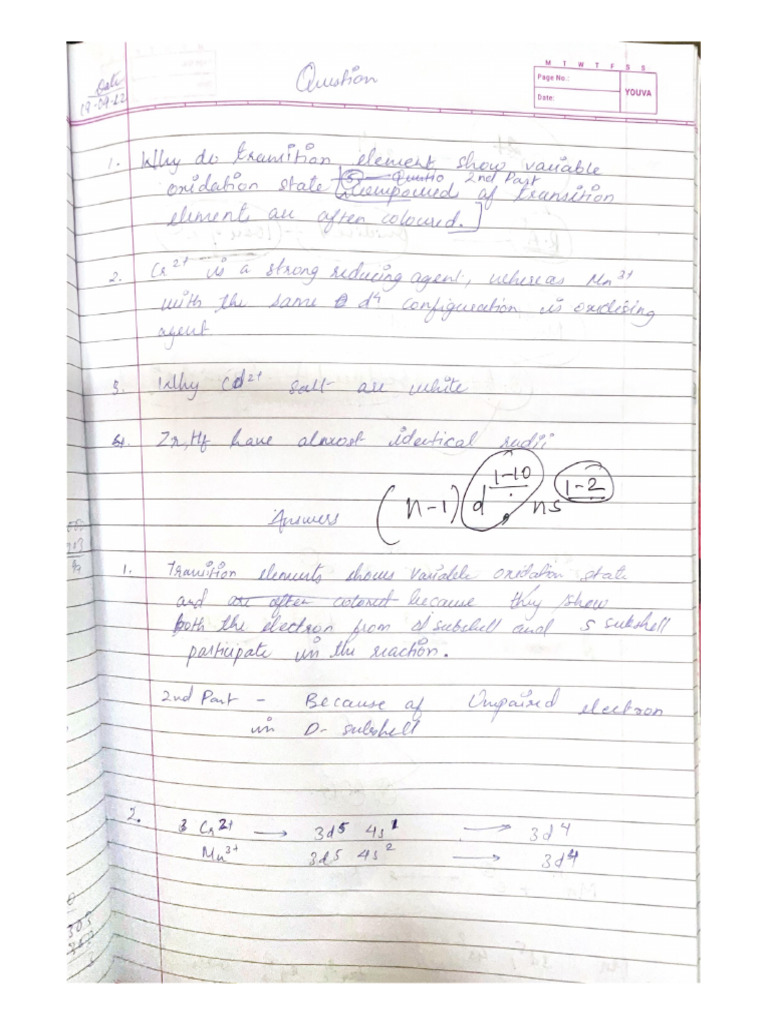 Date
19-09-22
Question
M T W T F S S
Page No.:
Date:
YOUVA
1. Why do transition element show variable
oxidation state [ Questio 2nd Part
compound of transition
element are often coloured.]
2. Cr2+ is a strong reducing agent, whereas Mn3+
with the same d4 configuration is oxidising
agent
3. Why Cd2+ salt are white
4. Zr, Hf have almost identical radii
(n-1) d1-10 ns1-2
Answers
1. Transition elements shows variable oxidation state
and are often colored because they show
both the electron from d subshell and s subshell
participate in the reaction.
2nd Part - Because of Unpaired electron
in D- subshell
2. Cr2+ → 3d5 4s1 → 3d4
Mn3+ 3d5 4s2 → 3d4